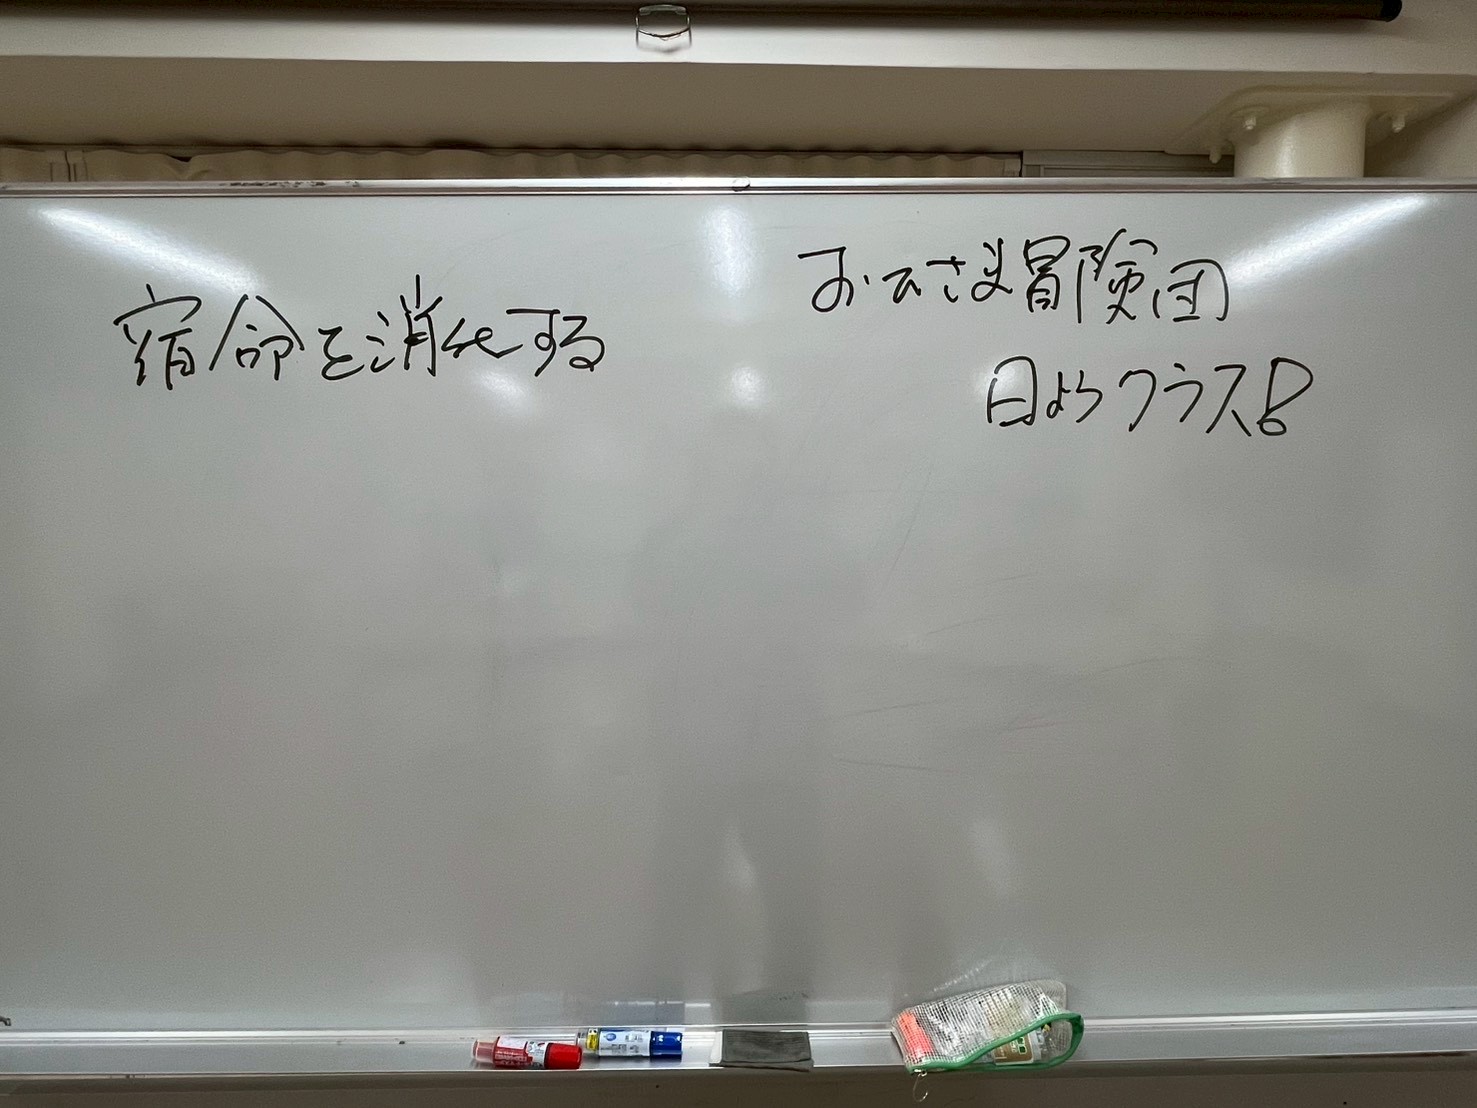 宿命を消化する
おひさま冒険団
日ようクラス!